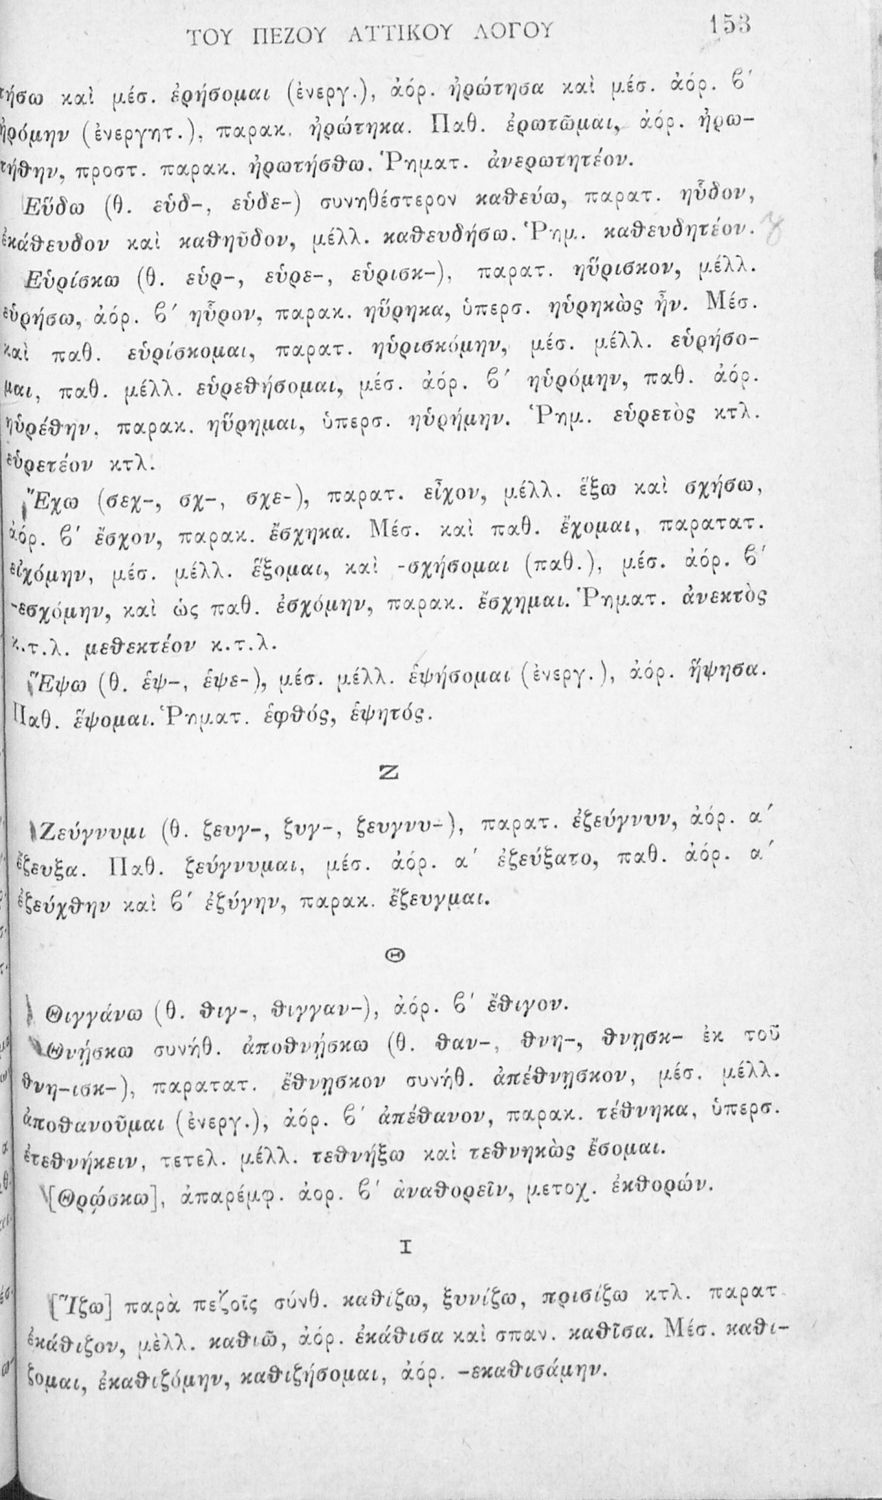 ΤΟΥ ΠΕΖΟΥ ΑΤΤΙΚΟΥ ΛΟΓΟΥ 153
τήσω καὶ μέσ. ἐρήσομαι (ἐνεργ.), ἀόρ. ἠρώτησα καὶ μέσ. ἀόρ. ϐ′
ἠρόμην (ἐνεργητ.), παρακ. ἠρώτηκα. Παθ. ἐρωτῶμαι, ἀόρ. ἠρω-
τήθην, προστ. παρακ. ἠρωτήσθω. Ῥηματ. ἀνερωτητέον.
Εὕδω (θ. εὑδ-, εὑδε-) συνηθέστερον καθεύω, παρατ. ηὗδον,
ἐκάθευδον καὶ καθηῦδον, μέλλ. καθευδήσω. Ῥημ. καθευδητέον.
Εὑρίσκω (θ. εὑρ-, εὑρε-, εὑρισκ-), παρατ. ηὕρισκον, μέλλ.
εὑρήσω, ἀόρ. ϐ′ ηὗρον, παρακ. ηὕρηκα, ὑπερσ. ηὑρηκὼς ἦν. Μέσ.
καὶ παθ. εὑρίσκομαι, παρατ. ηὑρισκόμην, μέσ. μέλλ. εὑρήσο-
μαι, παθ. μέλλ. εὑρεθήσομαι, μέσ. ἀόρ. ϐ′ ηὑρόμην, παθ. ἀόρ.
ηὑρέθην. παρακ. ηὕρημαι, ὑπερσ. ηὑρήμην. Ῥημ. εὑρετὸς κτλ.
εὑρετέον κτλ.
Ἔχω (σεχ-, σχ-, σχε-), παρατ. εἶχον, μέλλ. ἕξω καὶ σχήσω,
ἀόρ. ϐ′ ἔσχον, παρακ. ἔσχηκα. Μέσ. καὶ παθ. ἔχομαι, παρατατ.
εἰχόμην, μέσ. μέλλ. ἕξομαι, καὶ -σχήσομαι (παθ.), μέσ. ἀόρ. ϐ′
-εσχόμην, καὶ ὡς παθ. ἐσχόμην, παρακ. ἔσχημαι. Ῥηματ. ἀνεκτὸς
κ.τ.λ. μεθεκτέον κ.τ.λ.
Ἕψω (θ. ἑψ-, ἑψε-), μέσ. μέλλ. ἑψήσομαι (ἐνεργ.), ἀόρ. ἥψησα.
Παθ. ἕψομαι. Ῥηματ. ἑφθός, ἑψητός.
Ζ
Ζεύγνυμι (θ. ζευγ-, ζυγ-, ζευγνυ-), παρατ. ἐζεύγνυν, ἀόρ. α′
ἔζευξα. Παθ. ζεύγνυμαι, μέσ. ἀόρ. α′ ἐζεύξατο, παθ. ἀόρ. α′
ἐζεύχθην καὶ ϐ′ ἐζύγην, παρακ. ἔζευγμαι.
Θ
Θιγγάνω (θ. θιγ-, θιγγαν-), ἀόρ. ϐ′ ἔθιγον.
Θνήσκω συνήθ. ἀποθνήσκω (θ. θαν-, θνη-, θνησκ- ἐκ τοῦ
θνη-ισκ-), παρατατ. ἔθνησκον συνήθ. ἀπέθνησκον, μέσ. μέλλ.
ἀποθανοῦμαι (ἐνεργ.), ἀόρ. ϐ′ ἀπέθανον, παρακ. τέθνηκα, ὑπερσ.
ἐτεθνήκειν, τετελ. μέλλ. τεθνήξω καὶ τεθνηκὼς ἔσομαι.
[Θρῴσκω], ἀπαρέμφ. ἀορ. ϐ′ ἀναθορεῖν, μετοχ. ἐκθορών.
Ι
[Ἵζω] παρὰ πεζοῖς σύνθ. καθίζω, ξυνίζω, πρισίζω κτλ. παρατ.
ἐκάθιζον, μὲλλ. καθιῶ, ἀόρ. ἐκάθισα καὶ σπαν. καθῖσα. Μέσ. καθί-
ζομαι, ἐκαθιζόμην, καθιζήσομαι, ἀόρ. -εκαθισάμην.